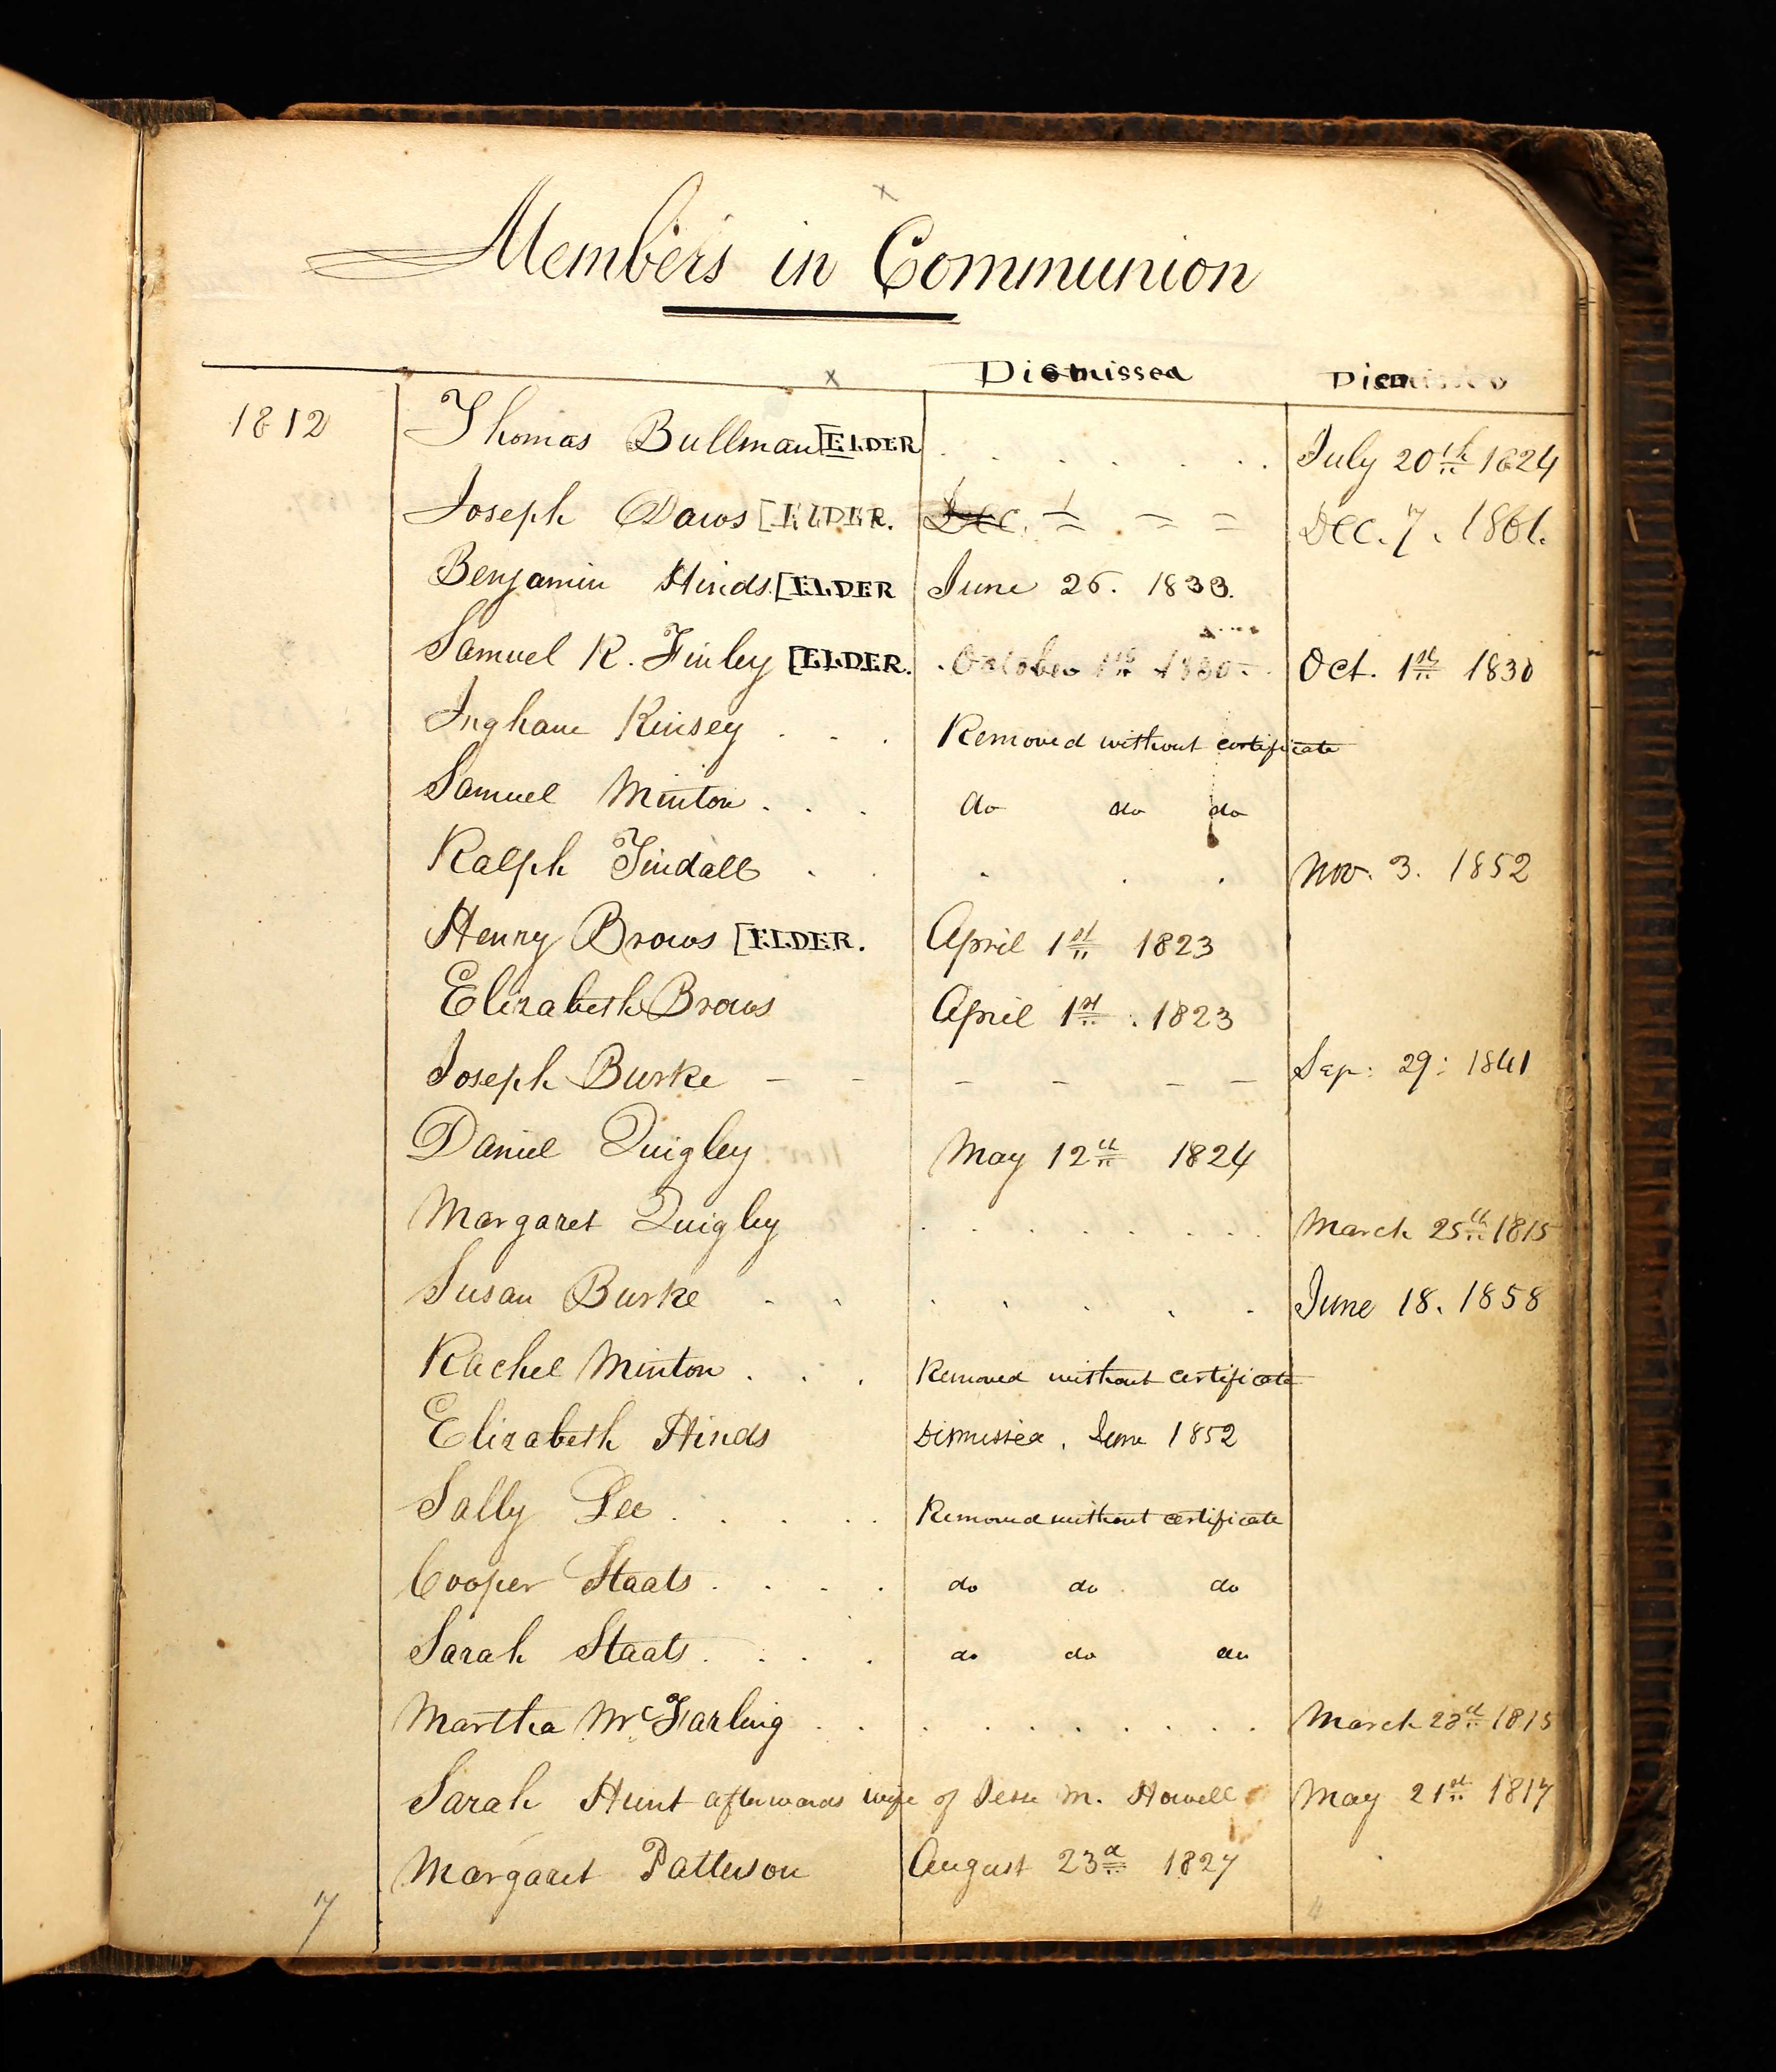 Members in Communion
Dismissed
1812 Thomas Bullman [ELDER . . . . . . . July 20th 1824
Joseph Daws [ELDER. Dec. Dec. 7. 1861.
Benjamin Hinds. [ELDER June 26. 1833.
Samuel R. Finley [ELDER. October 1st 1830 Oct. 1st 1830
Ingham Kinsey . . . Removed without certificate
Samuel Minton . . . do do do
Ralph Tindall . . . . . Nov. 3. 1852
Henry Brows [ELDER. April 1st 1823
Elizabeth Brows April 1st : 1823
Joseph Burke – – – – – – Sep: 29: 1841
Daniel Quigley May 12th 1824
Margaret Quigley . . . . . . . March 25th 1815
Susan Burke . . . . . . . June 18. 1858
Rachel Minton . . . Removed without certificate
Elizabeth Hinds Dismissed, June 1852
Sally Lee . . . . . Removed without certificate
Cooper Staats . . . . do do do
Sarah Staats . . . . do do do
Martha McFarling . . . . . . . . . March 23d 1815
Sarah Hunt afterwards wife of Jesse M. Howell May 21st 1817
Margaret Patterson August 23d 1827
7